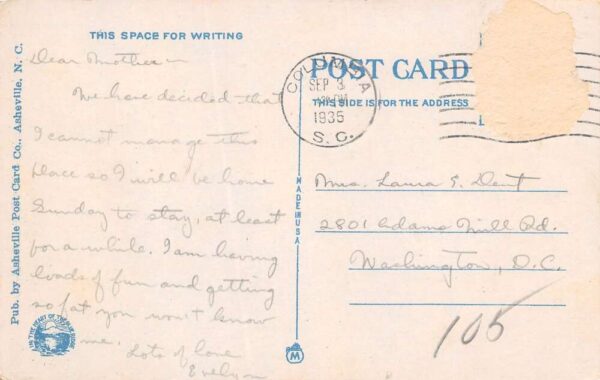 THIS SPACE FOR WRITING
Dear Mother —
We have decided that
I cannot manage this
place so I will be home
Sunday to stay, at least
for a while. I am having
loads of fun and getting
so fat you won't know
me.
Lots of love
Evelyn
Pub. by Asheville Post Card Co., Asheville, N. C.
IN THE HEART OF THE BLUE RIDGE
MADE IN USA
M
COLUMBIA
SEP 3
1935
S. C.
POST CARD
THIS SIDE IS FOR THE ADDRESS
Mrs. Laura E. Dent
2801 Adams Mill Rd.
Washington, D.C.
105